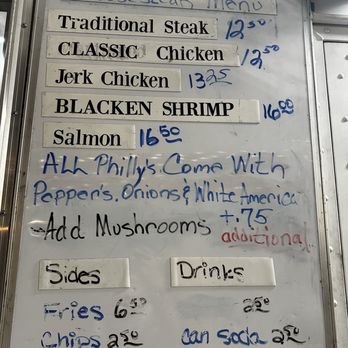 Menu
Traditional Steak 12.50
CLASSIC Chicken 12.50
Jerk Chicken 13.25
BLACKEN SHRIMP 16.50
Salmon 16.50
ALL Philly's Come With
Pepper's, Onions & White America
~Add Mushrooms +.75
additional
Sides Drinks
Fries 6.50 2.50
Chips 2.50 can soda 2.50